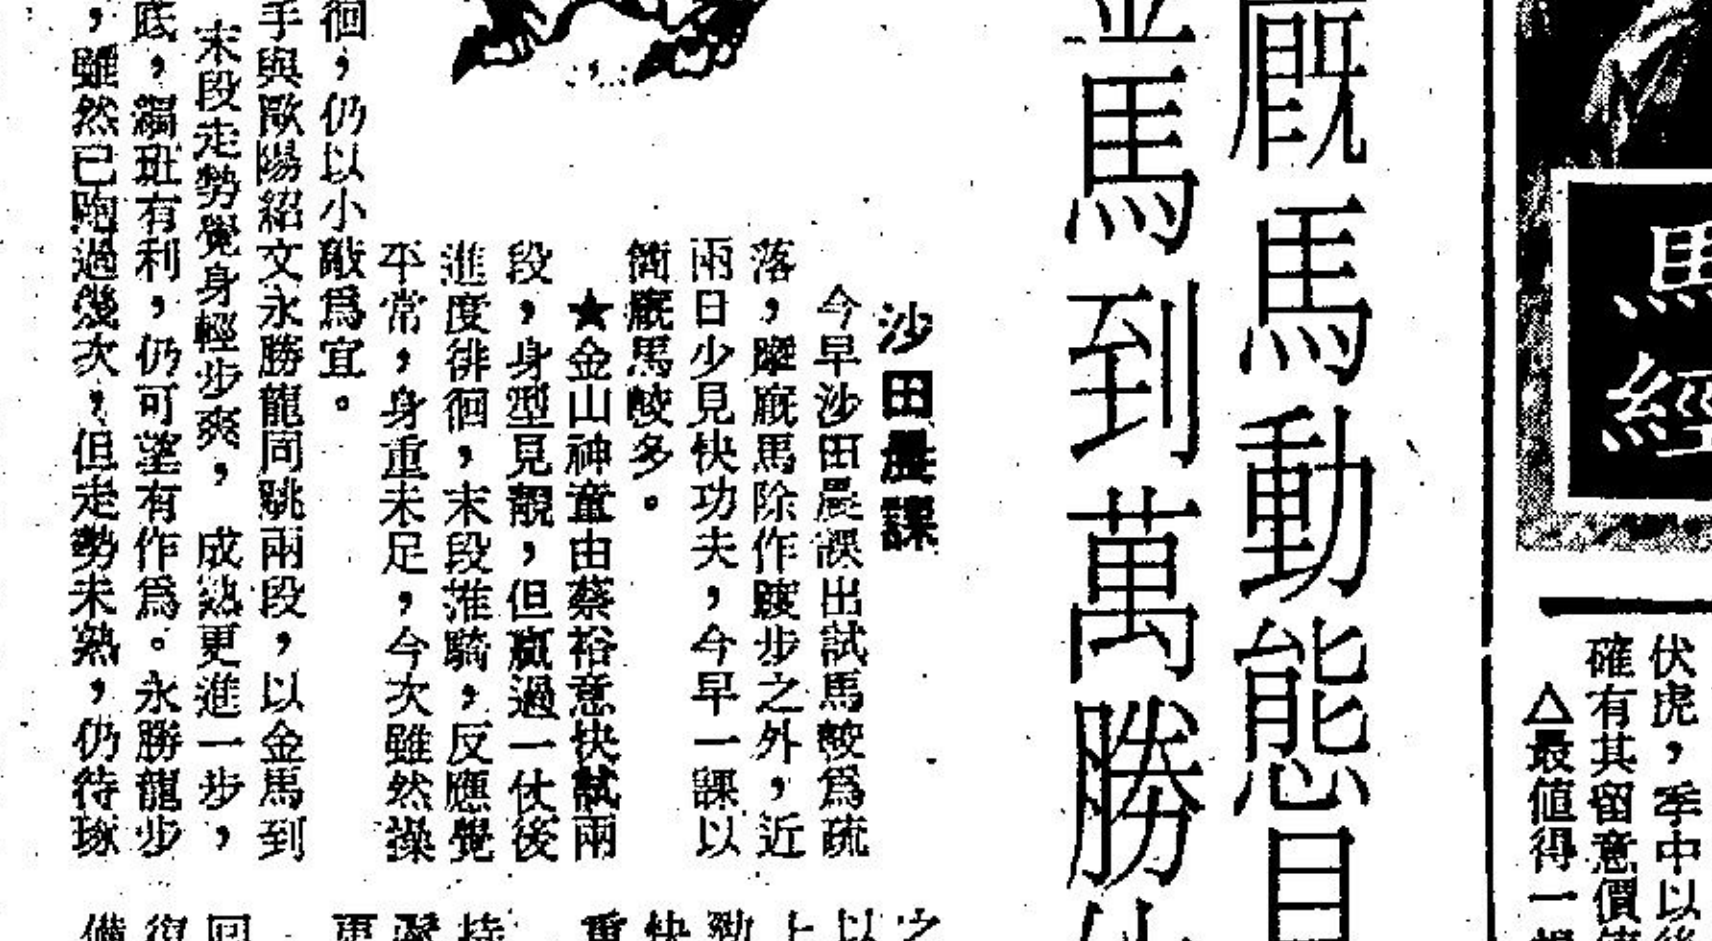 馬經
伏虎，季中以後
確有其留意價
△最值得一
廐馬動能
金馬到萬勝
沙田晨課
今早沙田晨課出試馬較爲疏
落，羅廐馬除作踱步之外，近
兩日少見快功夫，今早一課以
簡廐馬較多。
★金山神童由蔡裕意快試兩
段，身型見靚，但贏過一仗後
進度徘徊，末段推騎，反應覺
平常，身重未足，今次雖然操
徊，仍以小敲爲宜。
手與歐陽紹文永勝龍同跳兩段，以金馬到
末段走勢覺身輕步爽，成熟更進一步，
底，編班有利，仍可望有作爲。永勝龍步
，雖然已跑過幾次，但走勢未熟，仍待琢
之
以
上
勁
快
重
持
更
回
復
備